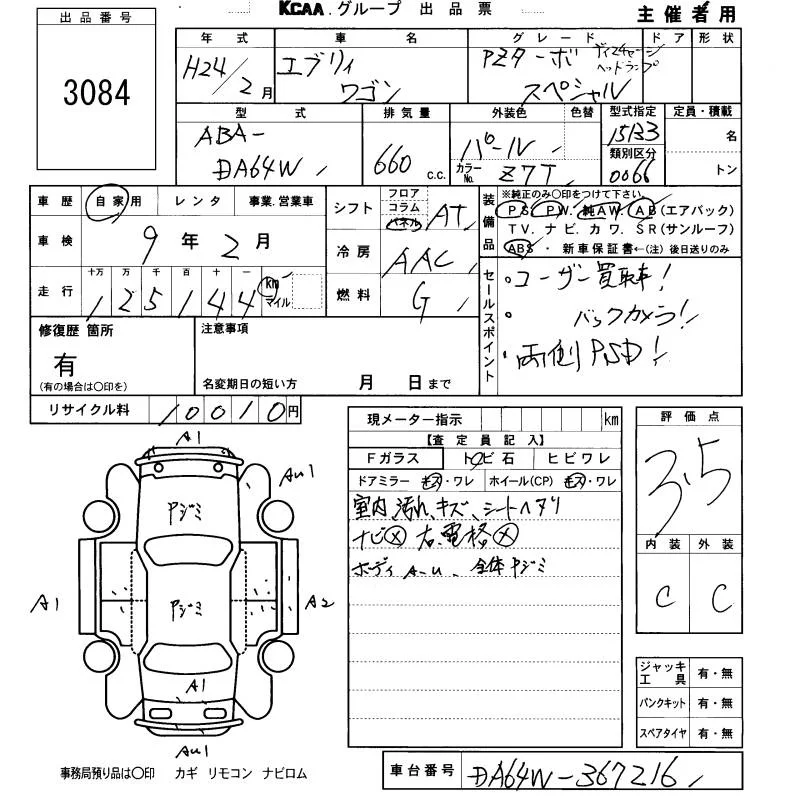 KCAA.グループ 出品票
主催者用
出品番号
3084
年式 車名 グレード ドア 形状
H24/2月 エブリィ ワゴン PZターボ スペシャル ディスチャージ ヘッドランプ
型式 排気量 外装色 色替 型式指定 定員・積載
ABA-DA64W 660 c.c. パール 15133 名
カラーNo. Z7T 類別区分 0066 トン
車歴 自家用 レンタ 事業.営業車
シフト フロア コラム パネル AT
装備品 ※純正のみ〇印をつけて下さい
PS. PW. 純AW. AB(エアバック)
TV. ナビ. カワ. SR(サンルーフ)
ABS・新車保証書←(注)後日送りのみ
車検 9年2月
冷房 AAC
走行 十万 万 千 百 十 一
125144 km マイル
燃料 G
セールスポイント
・ユーザー買取車!
・バックカメラ!
・両側PSD!
修復歴 箇所
有
(有の場合は〇印を)
注意事項
名変期日の短い方 月 日まで
リサイクル料 10010円
現メーター指示 km
【査定員記入】
Fガラス トビ石 ヒビワレ
ドアミラー キズ・ワレ ホイール(CP) キズ・ワレ
室内、汚れ、キズ、シートヘタリ
ナビ× 右、電格×
ボディ A-U、全体ヤジミ
評価点
3.5
内装 外装
C C
A1
AU1
ヤジミ
A1 ヤジミ A2
A1
AU1
ジャッキ工具 有・無
パンクキット 有・無
スペアタイヤ 有・無
事務局預り品は〇印 カギ リモコン ナビロム
車台番号 DA64W-367216